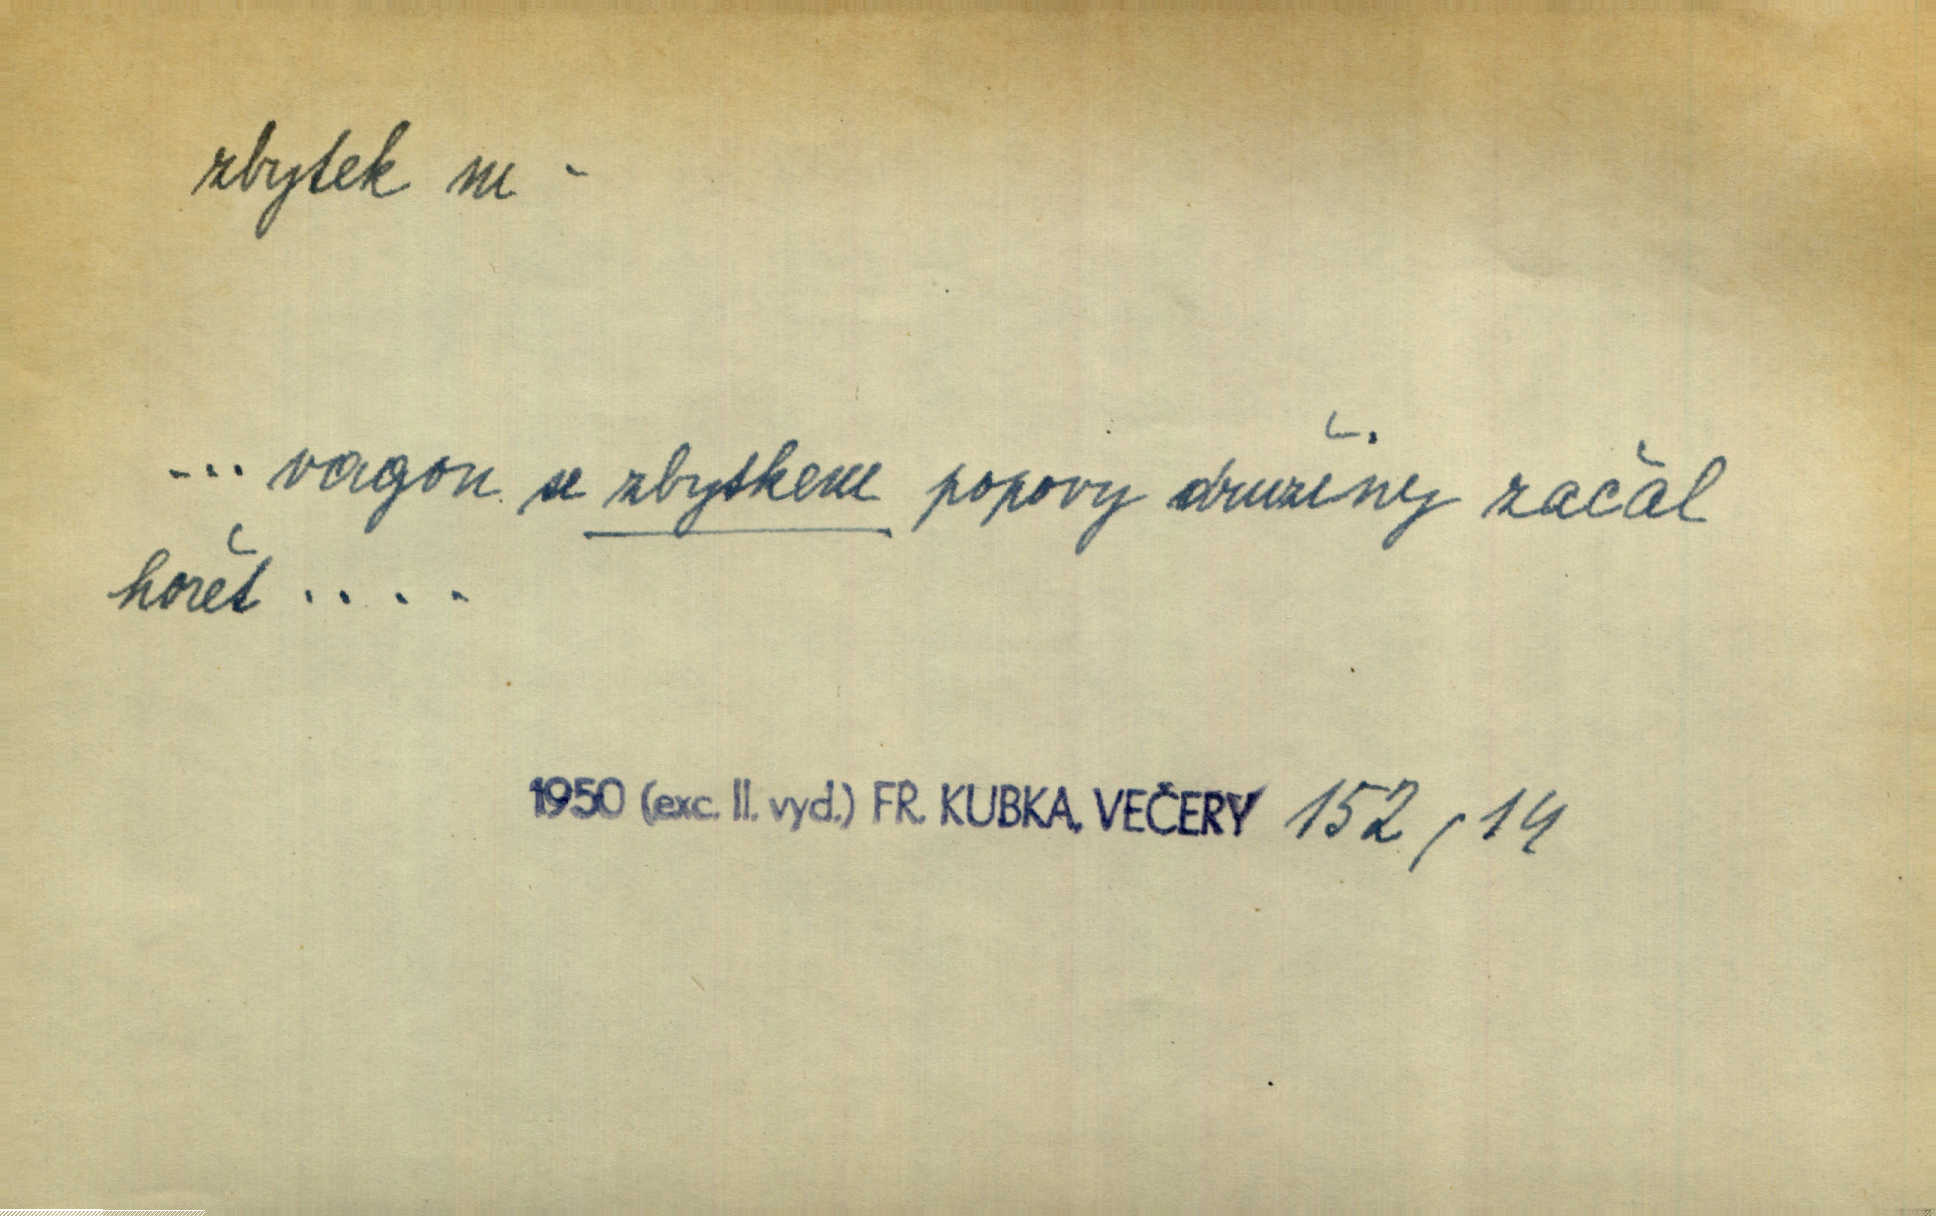 zbytek m -
... vagon se zbytkem popovy družiny začal
hořet ....
1950 (exc. II. vyd.) FR. KUBKA, VEČERY 152, 14